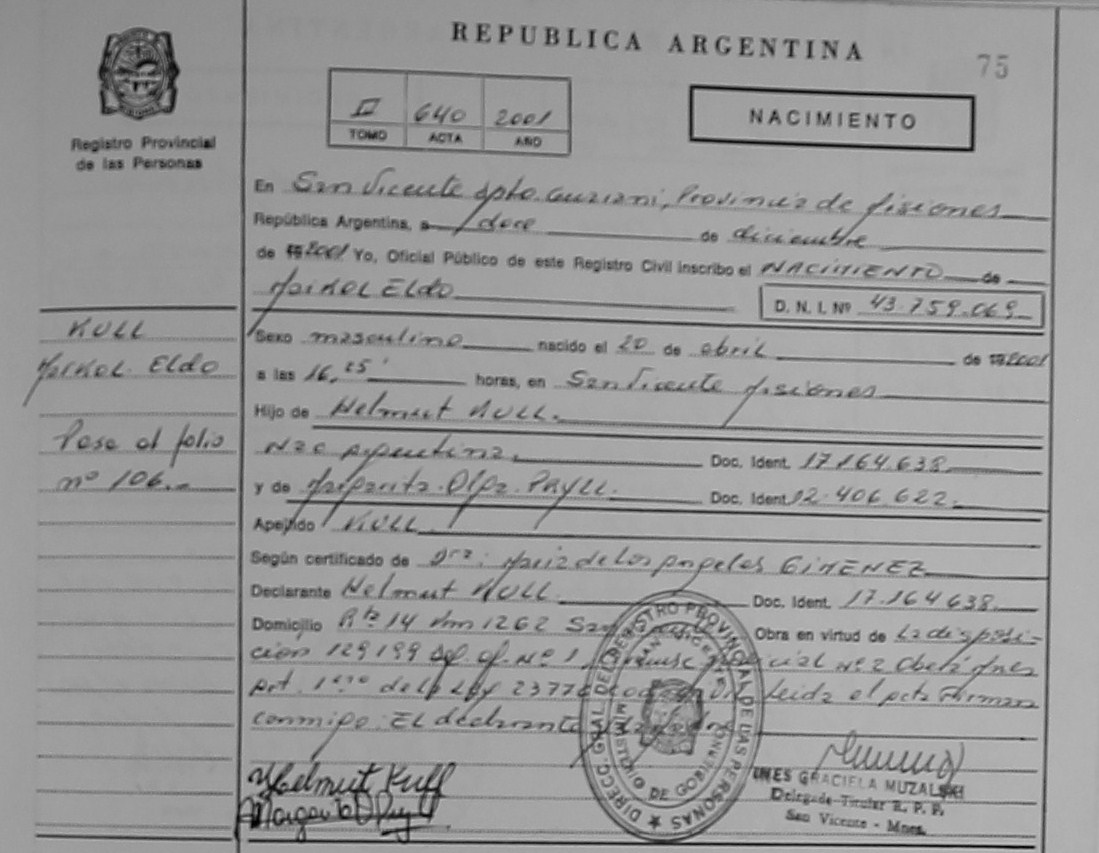 REPUBLICA ARGENTINA
75
Registro Provincial
de las Personas
II 640 2001
TOMO ACTA AÑO
NACIMIENTO
En San Vicente dpto. Guaraní, Provincia de Misiones
República Argentina, a doce de diciembre
de 2001 Yo, Oficial Público de este Registro Civil inscribo el NACIMIENTO de
Maikol Eldo
D. N. I. Nº 43.759.069
KULL
Maikol Eldo
Pasa al folio
nº 106.-
Sexo masculino nacido el 20 de abril de 2001
a las 16,25 horas, en San Vicente Misiones
Hijo de Helmut KULL.
Nac Argentina. Doc. Ident. 17.164.638
y de Margarita Olga PRYLL. Doc. Ident. 12.406.622.
Apellido KULL
Según certificado de Dra: María de los Angeles GIMENEZ
Declarante Helmut KULL Doc. Ident. 17.164.638.
Domicilio Rta 14 Km 1262 San Obra en virtud de La disposi-
ción 129199 Nº 1, Nº 2 Oberá Mnes
Art. 1ero de la Ley 23776 Leída el acta Firman
conmigo: El declarante
Helmut Kull
Margarita O Pryll
DIRECC. GRAL. DEL REGISTRO PROVINCIAL DE LAS PERSONAS
MINISTERIO DE GOBIERNO
SAN VICENTE
INES GRACIELA MUZALSKI
Delegada Titular R. P. P.
San Vicente - Mnes.